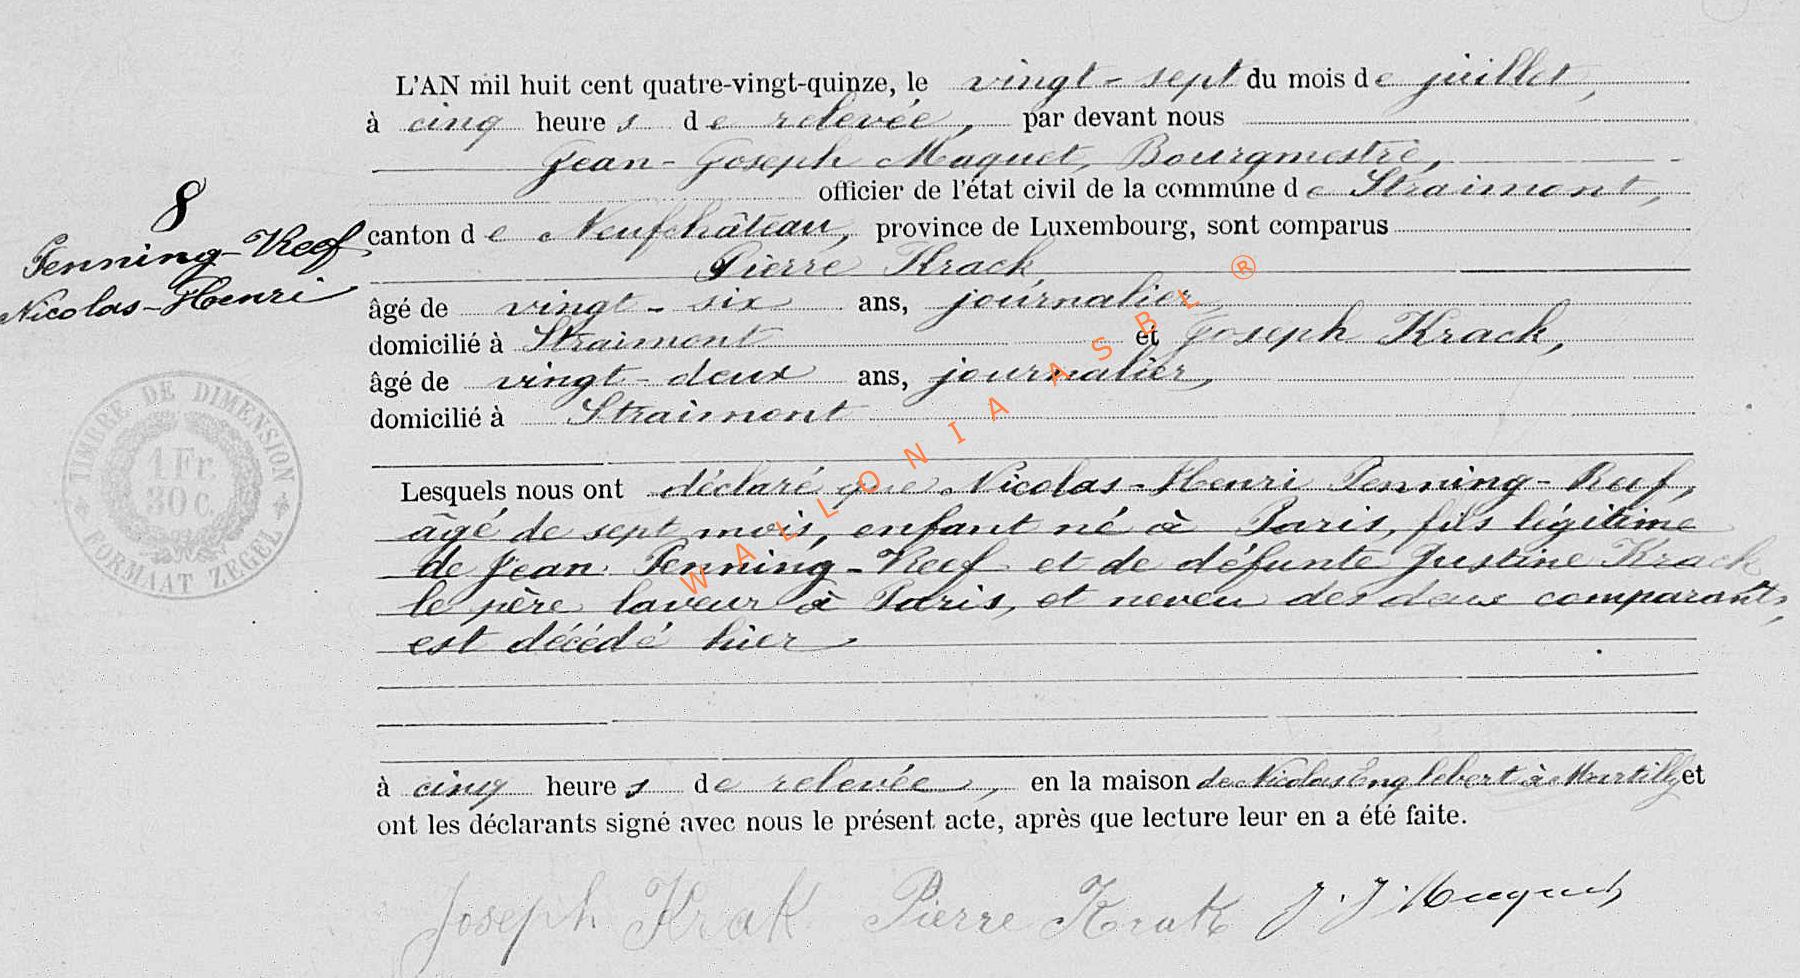 L'AN mil huit cent quatre-vingt-quinze, le vingt-sept du mois de juillet,
à cinq heures de relevée, par devant nous
Jean-Joseph Maquet, Bourgmestre,
officier de l'état civil de la commune de Straimont,
8
Penning-Reef
Nicolas-Henri
canton de Neufchâteau, province de Luxembourg, sont comparus
Pierre Krack
âgé de vingt-six ans, journalier,
domicilié à Straimont et Joseph Krack,
âgé de vingt-deux ans, journalier,
domicilié à Straimont
TIMBRE DE DIMENSION
1 Fr
30 c.
FORMAAT ZEGEL
Lesquels nous ont déclaré que Nicolas-Henri Penning-Reef,
âgé de sept mois, enfant né à Paris, fils légitime
de Jean Penning-Reef et de défunte Justine Krack
le père laveur à Paris, et neveu des deux comparants,
est décédé hier
à cinq heures de relevée, en la maison de Nicolas Englebert à Martilly et
ont les déclarants signé avec nous le présent acte, après que lecture leur en a été faite.
Joseph Krak Pierre Krak J. J. Maquet
WALLONIA ASBL ®